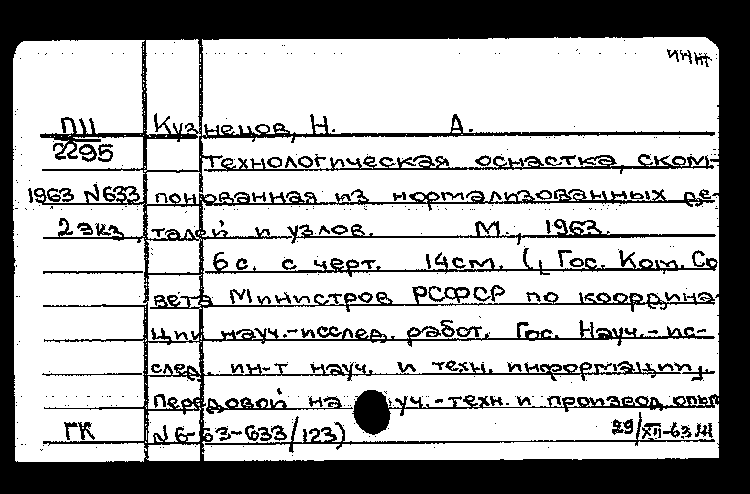 инж
П11 Кузнецов, Н. А.
2295 Технологическая оснастка, ском-
1963 N633 понованная из нормализованных де-
2 экз. талей и узлов. М., 1963.
6 с. с черт. 14см. (Гос. Ком. Со
вета Министров РСФСР по координа
ции науч.-исслед. работ. Гос. Науч.-ис-
след. ин-т науч. и техн. информации.
Передовой на уч.-техн. и производ. опыт
ГК N6-63-633/123) 29/XII-63